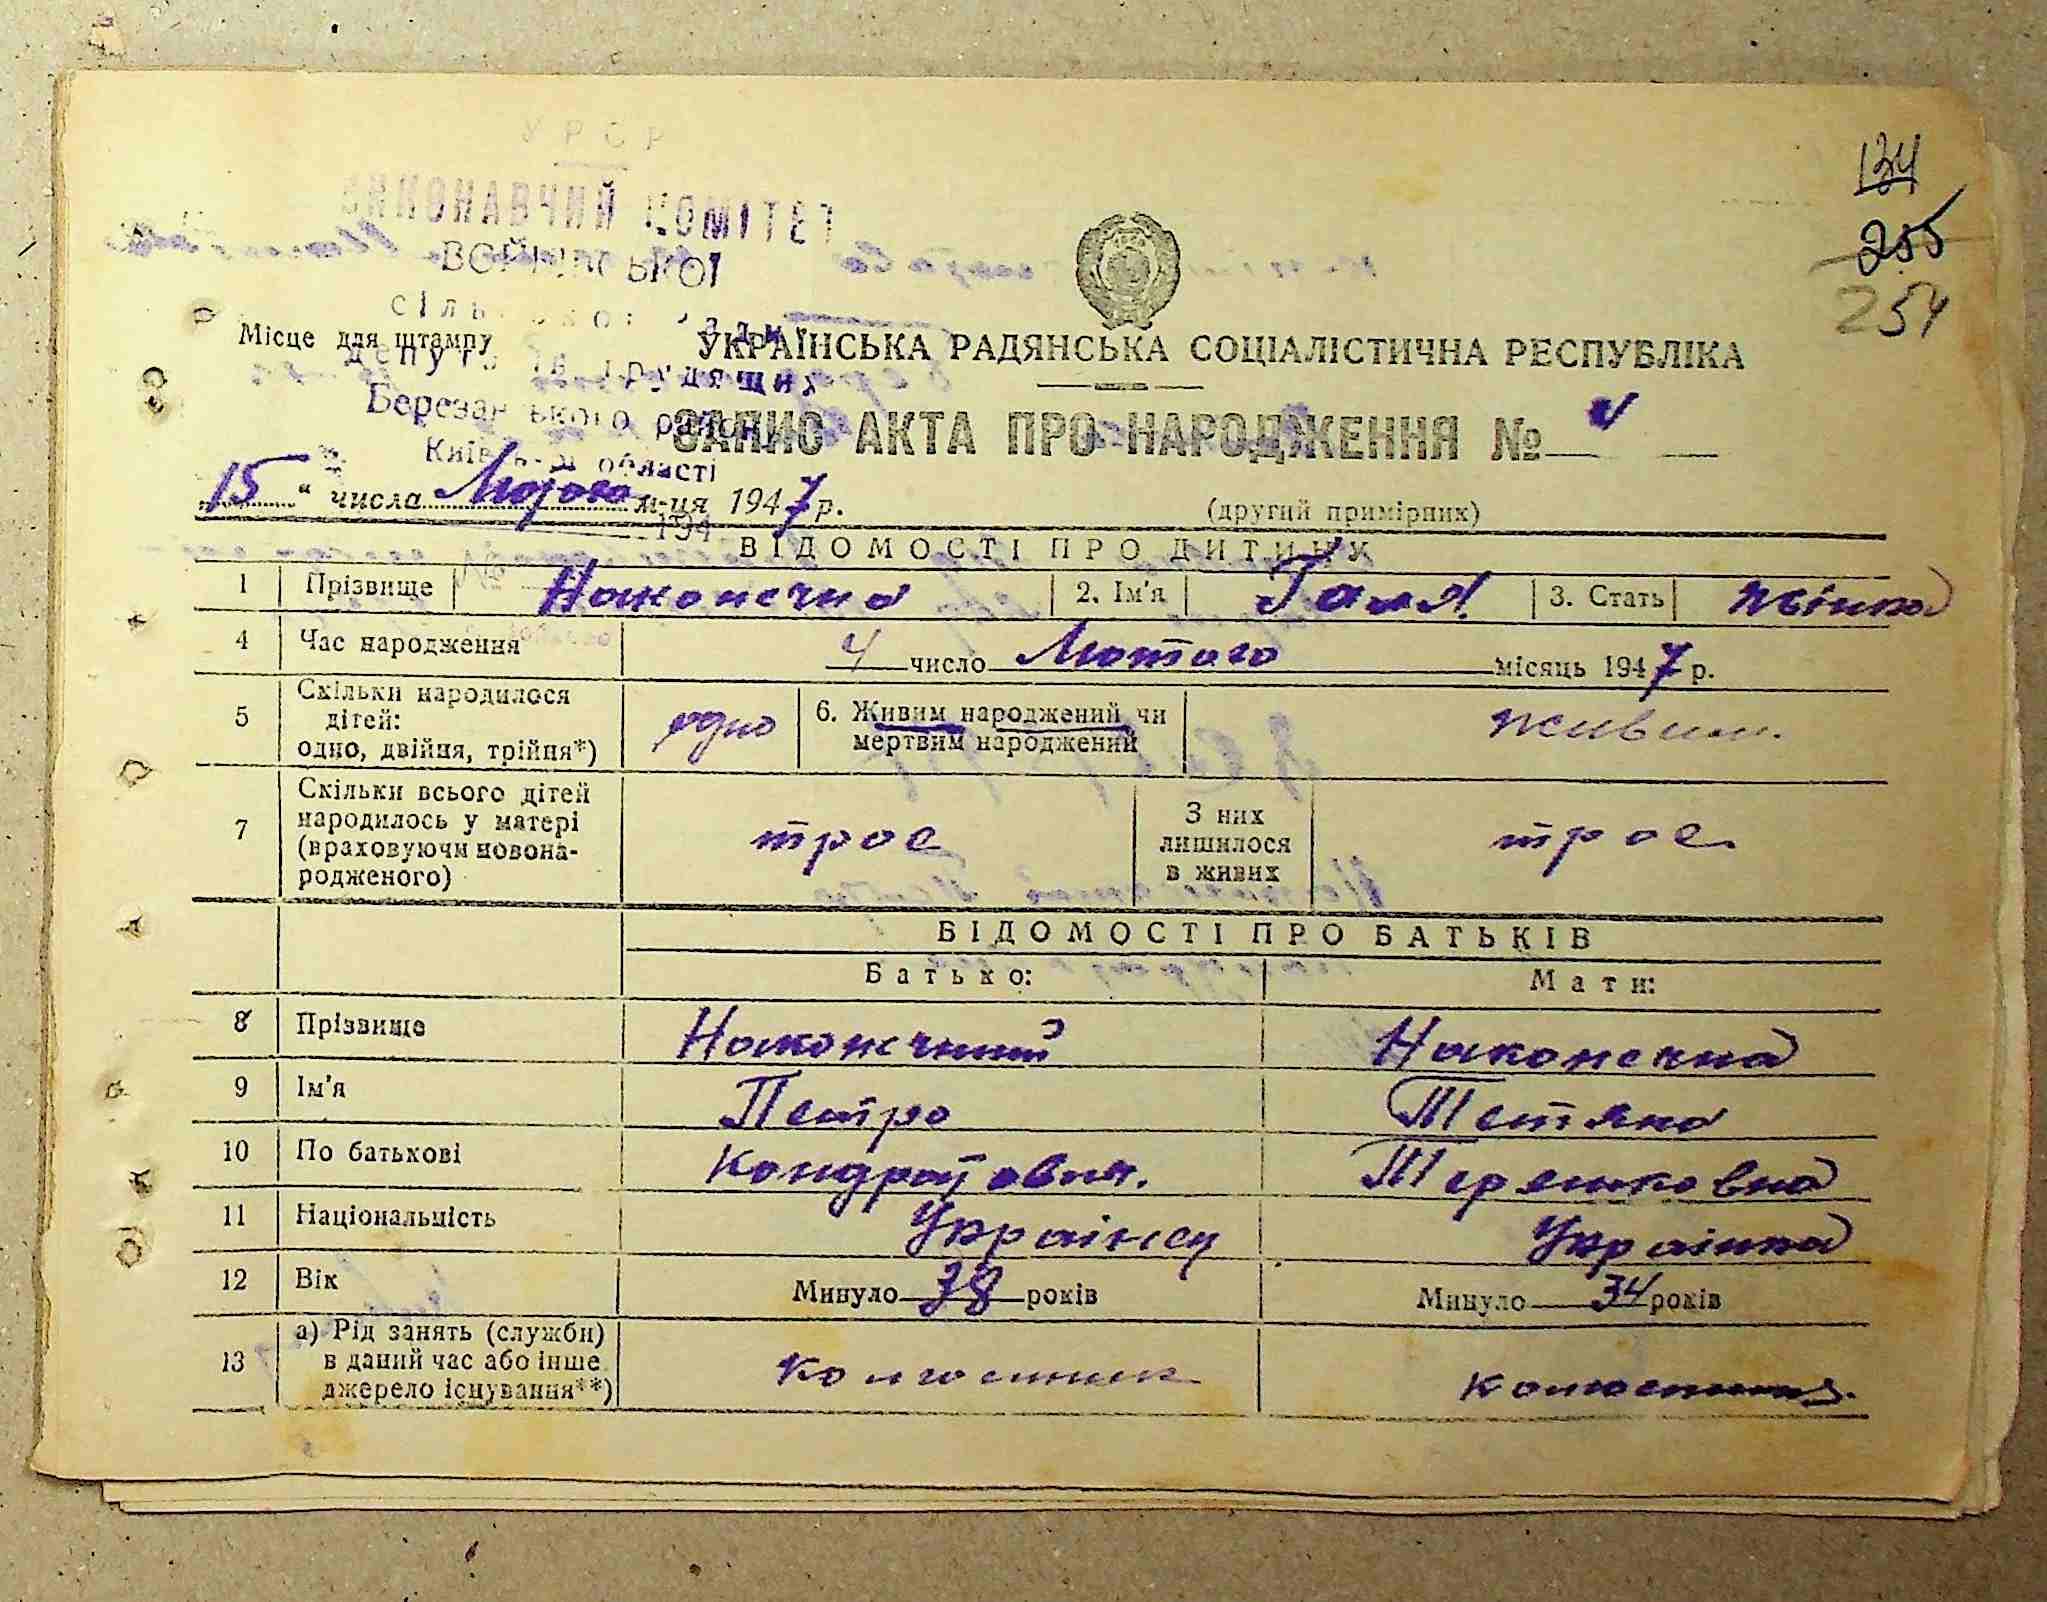 УРСР
ВИКОНАВЧИЙ КОМІТЕТ
сільської ради
депутатів трудящих
Березанського району
Київської області
194
134
255
254
Місце для штампу
УКРАЇНСЬКА РАДЯНСЬКА СОЦІАЛІСТИЧНА РЕСПУБЛІКА
ЗАПИС АКТА ПРО НАРОДЖЕННЯ №
15 " числа м-ця 1947 р.
(другий примірник)
ВІДОМОСТІ ПРО ДИТИНУ
1 Прізвище Наконечна 2. Ім'я Галя 3. Стать жінка
4 Час народження 4 число Лютого місяць 1947 р.
5 Скільки народилося дітей: одно, двійня, трійня*) одно 6. Живим народжений чи мертвим народжений живим.
7 Скільки всього дітей народилось у матері (враховуючи новонародженого) троє З них лишилося в живих троє
ВІДОМОСТІ ПРО БАТЬКІВ
Батько: Мати:
8 Прізвище Наконечний Наконечна
9 Ім'я Петро Тетяна
10 По батькові Кондратович. Терешковна
11 Національність Українец Українка
12 Вік Минуло 38 років Минуло 34 років
13 а) Рід занять (служби) в даний час або інше джерело існування**) колгоспник колгоспниця.